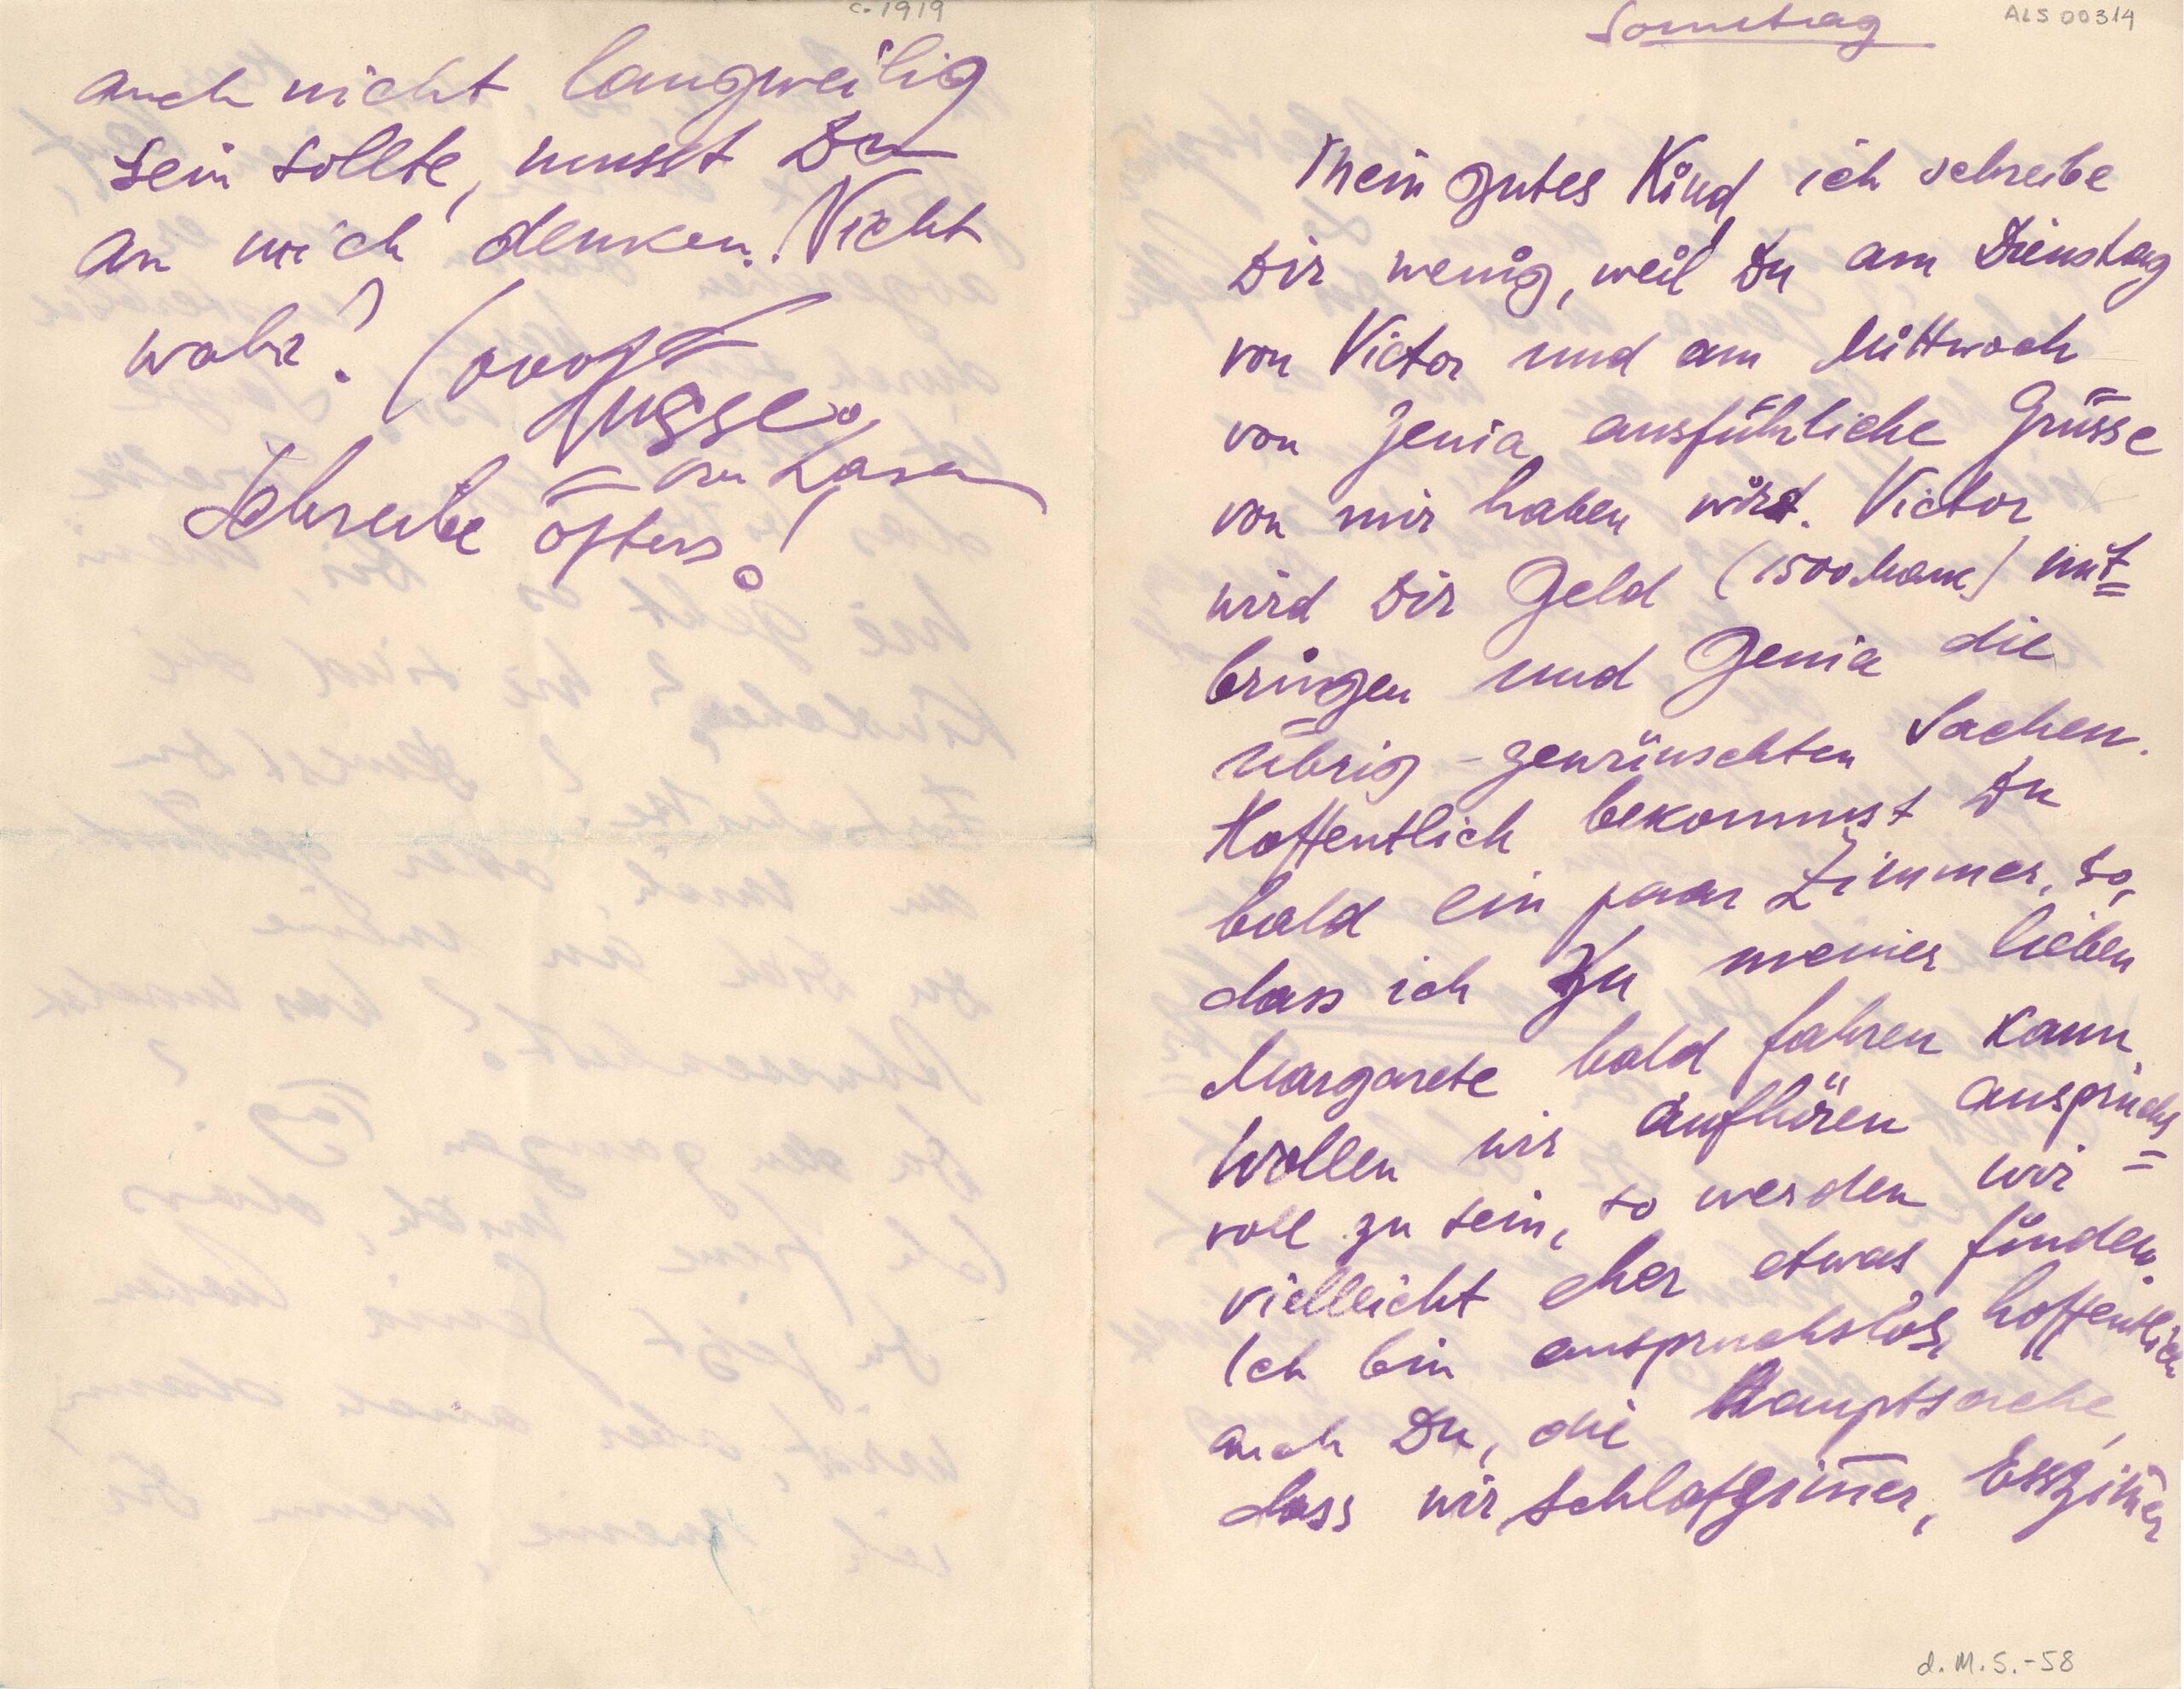 c. 1919
auch nicht langweilig
sein sollte, musst Du
an mich denken. Nicht
wahr? (1000
Küsse
von Lasar
Schreibe öfters!
Sonntag
ALS 00314
Mein gutes Kind, ich schreibe
Dir wenig, weil Du am Dienstag
von Victor und am Mittwoch
von Jenia ausführliche Grüsse
von mir haben wirst. Victor
wird Dir Geld (1500 Mark) mit=
bringen und Jenia die
übrig-gewünschten Sachen.
Hoffentlich bekommst Du
bald ein paar Zimmer, so,
dass ich zu meiner lieben
Margarete bald fahren kann.
Wollen wir aufhören anspruchs=
voll zu sein, so werden wir
vielleicht eher etwas finden.
Ich bin anspruchslos, hoffentlich
auch Du, die Hauptsache,
dass wir Schlafzim̅er, Esszim̅er
d. M. S. -58